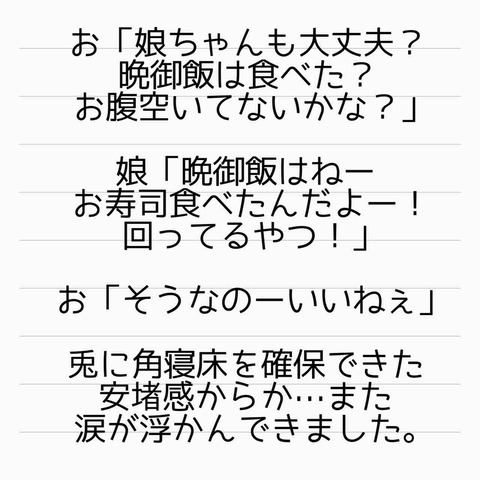 お「娘ちゃんも大丈夫？
晩御飯は食べた？
お腹空いてないかな？」
娘「晩御飯はねー
お寿司食べたんだよー！
回ってるやつ！」
お「そうなのーいいねぇ」
兎に角寝床を確保できた
安堵感からか…また
涙が浮かんできました。